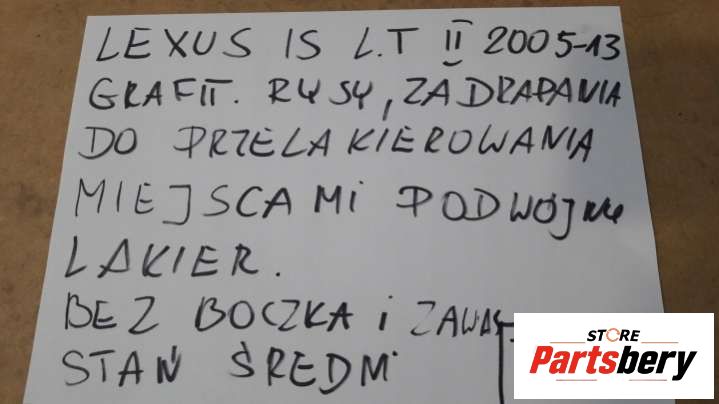 LEXUS IS L.T II 2005-13
GRAFIT. RYSY, ZADRAPANIA
DO PRZELAKIEROWANIA
MIEJSCAMI PODWÓJNY
LAKIER.
BEZ BOCZKA i
STAN ŚREDNI
STORE
Partsbery